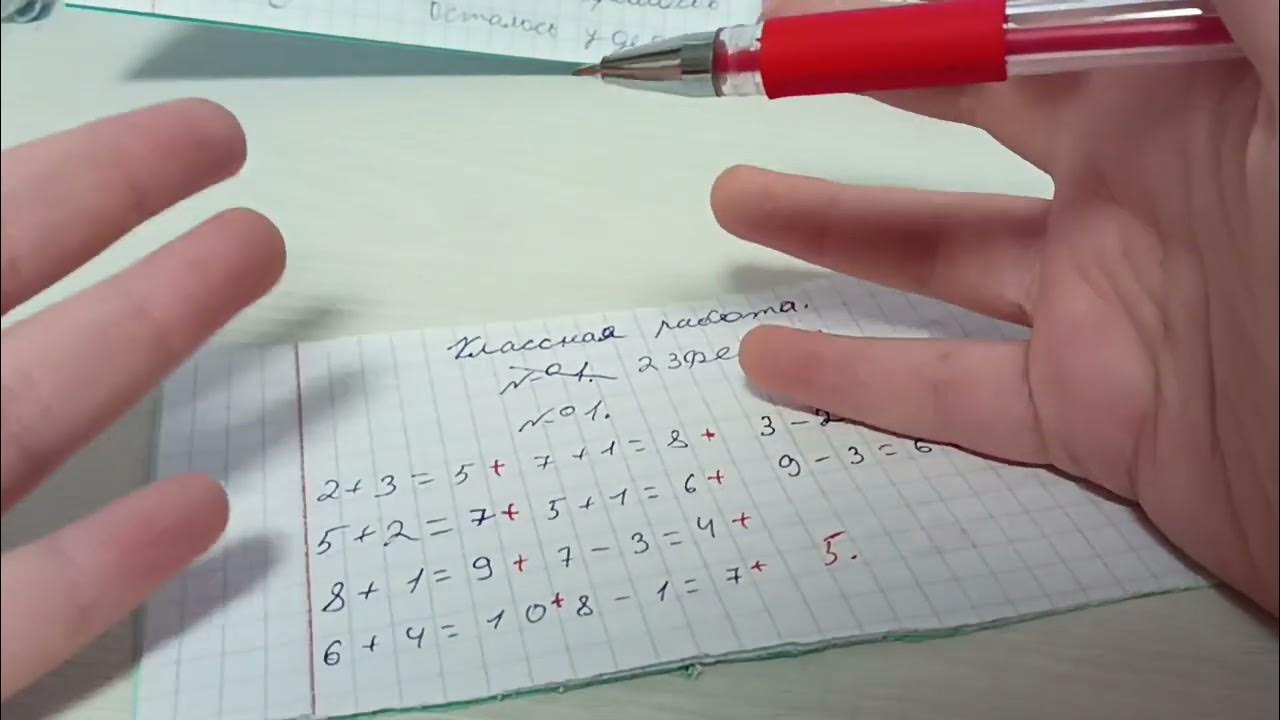 осталось у
Классная работа.
№1. 23 фе
№1.
2+3=5+ 7+1=8+ 3-2
5+2=7+ 5+1=6+ 9-3=6
8+1=9+ 7-3=4+
6+4=10+ 8-1=7+ 5.